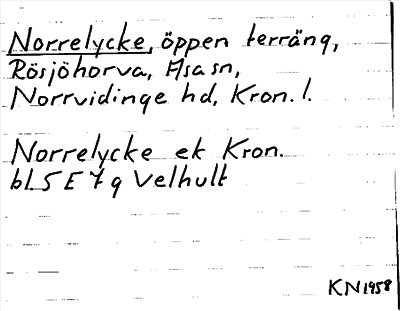 Norrelycke, öppen terräng,
Rösjöhorva, Asa sn,
Norrvidinge hd, Kron. l.
Norrelycke ek Kron.
bl. 5 E 7 g Velhult
KN 1958